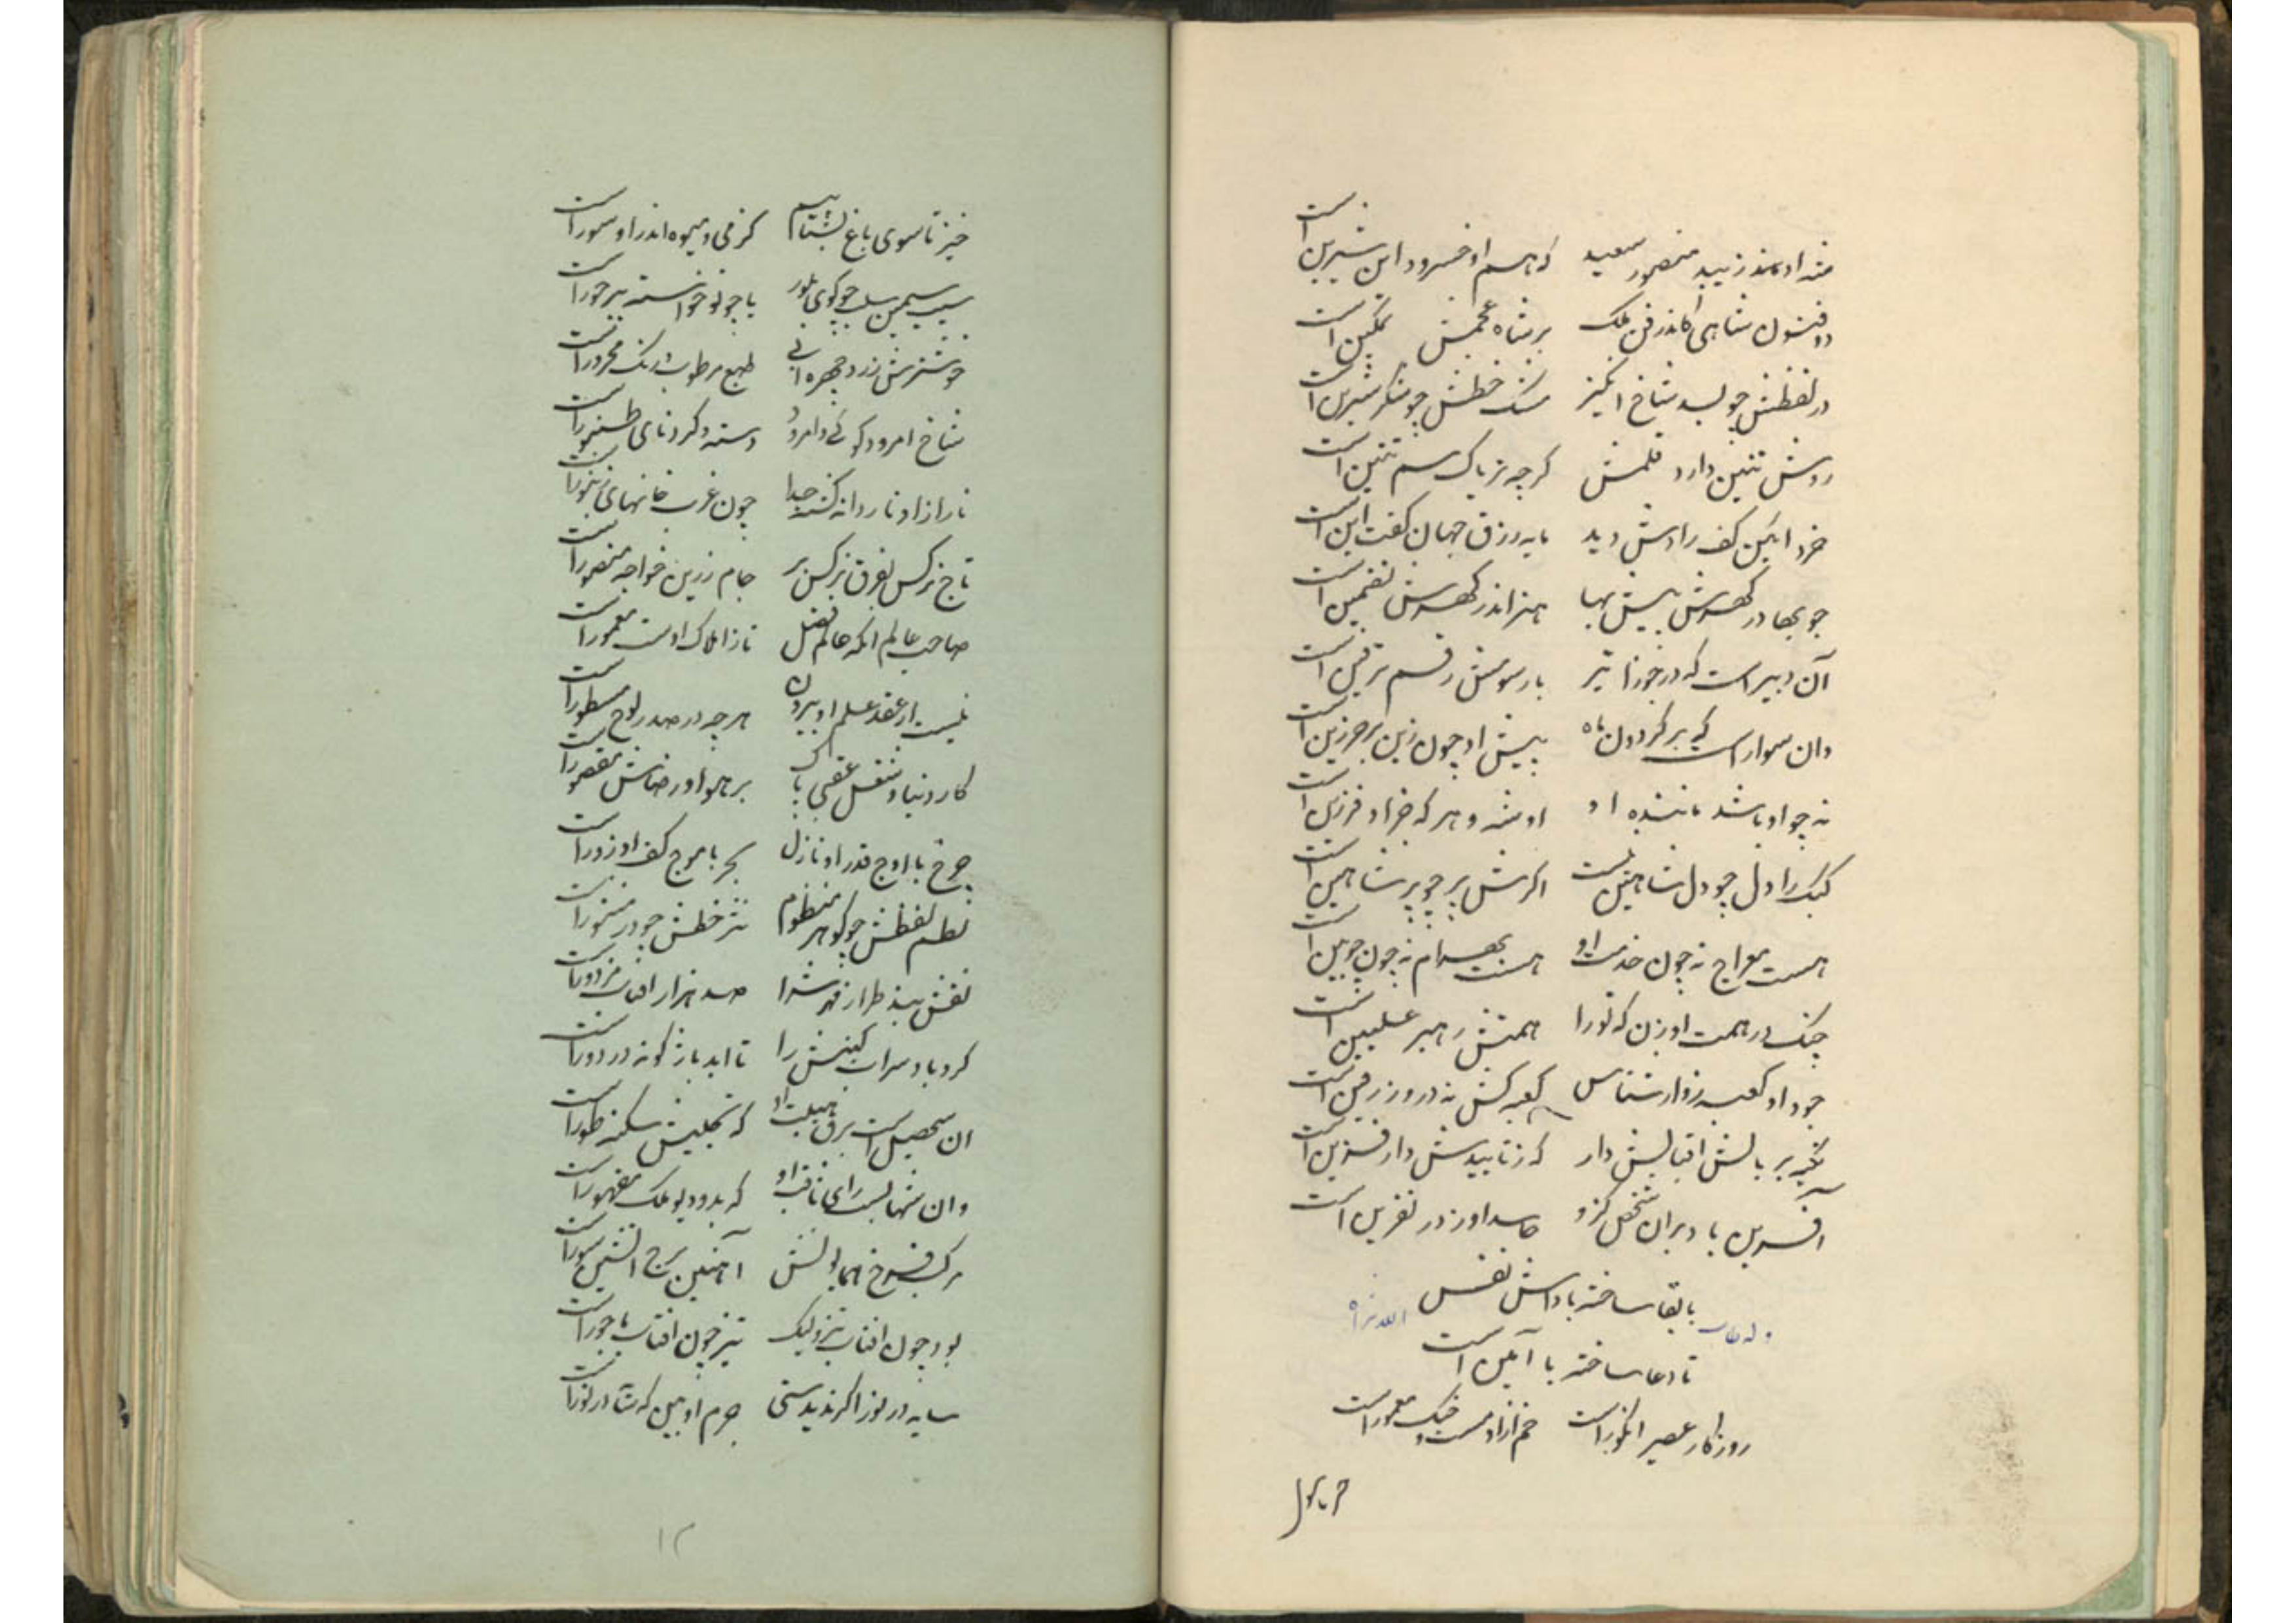 که هم او خسرو و این شیرین است
دوفنون شاهی کاندر فن ملک بر شاه عجمش تمکین است
در لفظش چو شاخ انگیز مشک خطش چو شکر شیرین است
روش تنین دارد قلمش گرچه تریاک سم تنین است
خرد آیین کف رادش دید مایه رزق جهان گفت این است
چو بها در گهرش بیش بها هنر اندر گهرش تضمین است
آن دبیر است که در جوزا تیر با رسومش رقم ترقین است
وان سوار است که بر گردون ماه پیش او چون زین بر خرزین است
نه چو او باشد ماننده او او شه و هر که جز او فرزین است
کبک را دل چو دل شاهین نیست اگرش پر چو پر شاهین است
هست معراج نه چون خدمت او هست بهرام نه چون چوبین است
چنگ در همت او زن که تو را همتش رهبر علیین است
جود او کعبه زوار شناس کعبه کش نه در و زرفین است
تکیه بر بالش اقبالش دار که ز تاییدش دارافزین است
آفرین باد بر آن شخص کزو حاسد او ز در نفرین است
با بقا ساخته بادش نفس
تا دعا ساخته با آمین است
روزگار عصیر انگور است خم ازو مست و چنگ معمور است
خیز تا سوی باغ بشتابیم کز می و میوه اندر او سور است
سیب سیمین سلب چو گوی بلور یا چو نوخواسته بر حور است
خوشه‌ش زرد چهره آبی طبع مرطوب و رنگ محرور است
شاخ امرود گوئی و امرود دسته و گرد نای طنبور است
نار ازاو ناردانه گشته جدا چون غرب خانهای زنبور است
تاج نرگس بفرق نرگس بر جام زرین خواجه منصور است
صاحب عالم انکه عالم فضل تا ز املاک اوست معمور است
نیست از عقد علم او بیرون هر چه در صدر لوح مسطور است
کار دنیا و شغل عقبی پاک بر هوا و رضاش مقصور است
چرخ با اوج قدر او نازل بحر با موج کف او زور است
نظم لفظش چو گوهر منظوم نثر خطش چو در منثور است
نقش بیند طراز قهرش را صد هزار آفتاب مزدور است
گردباد سراب کینش را تا ابد باژگونه در دور است
ان سحیل است برق هیبت او که تجلیش سکنه طور است
وان شهابست رای ثاقب او که بدو دیو ملک مقهور است
مرکب فرخ همایونش آهنین برج آتشین سور است
بود چون افتاب تیز ولیک تیز چون افتاب باحور است
سایه در نور اگر ندیدستی جرم او بین که سایه در نور است
۱۲